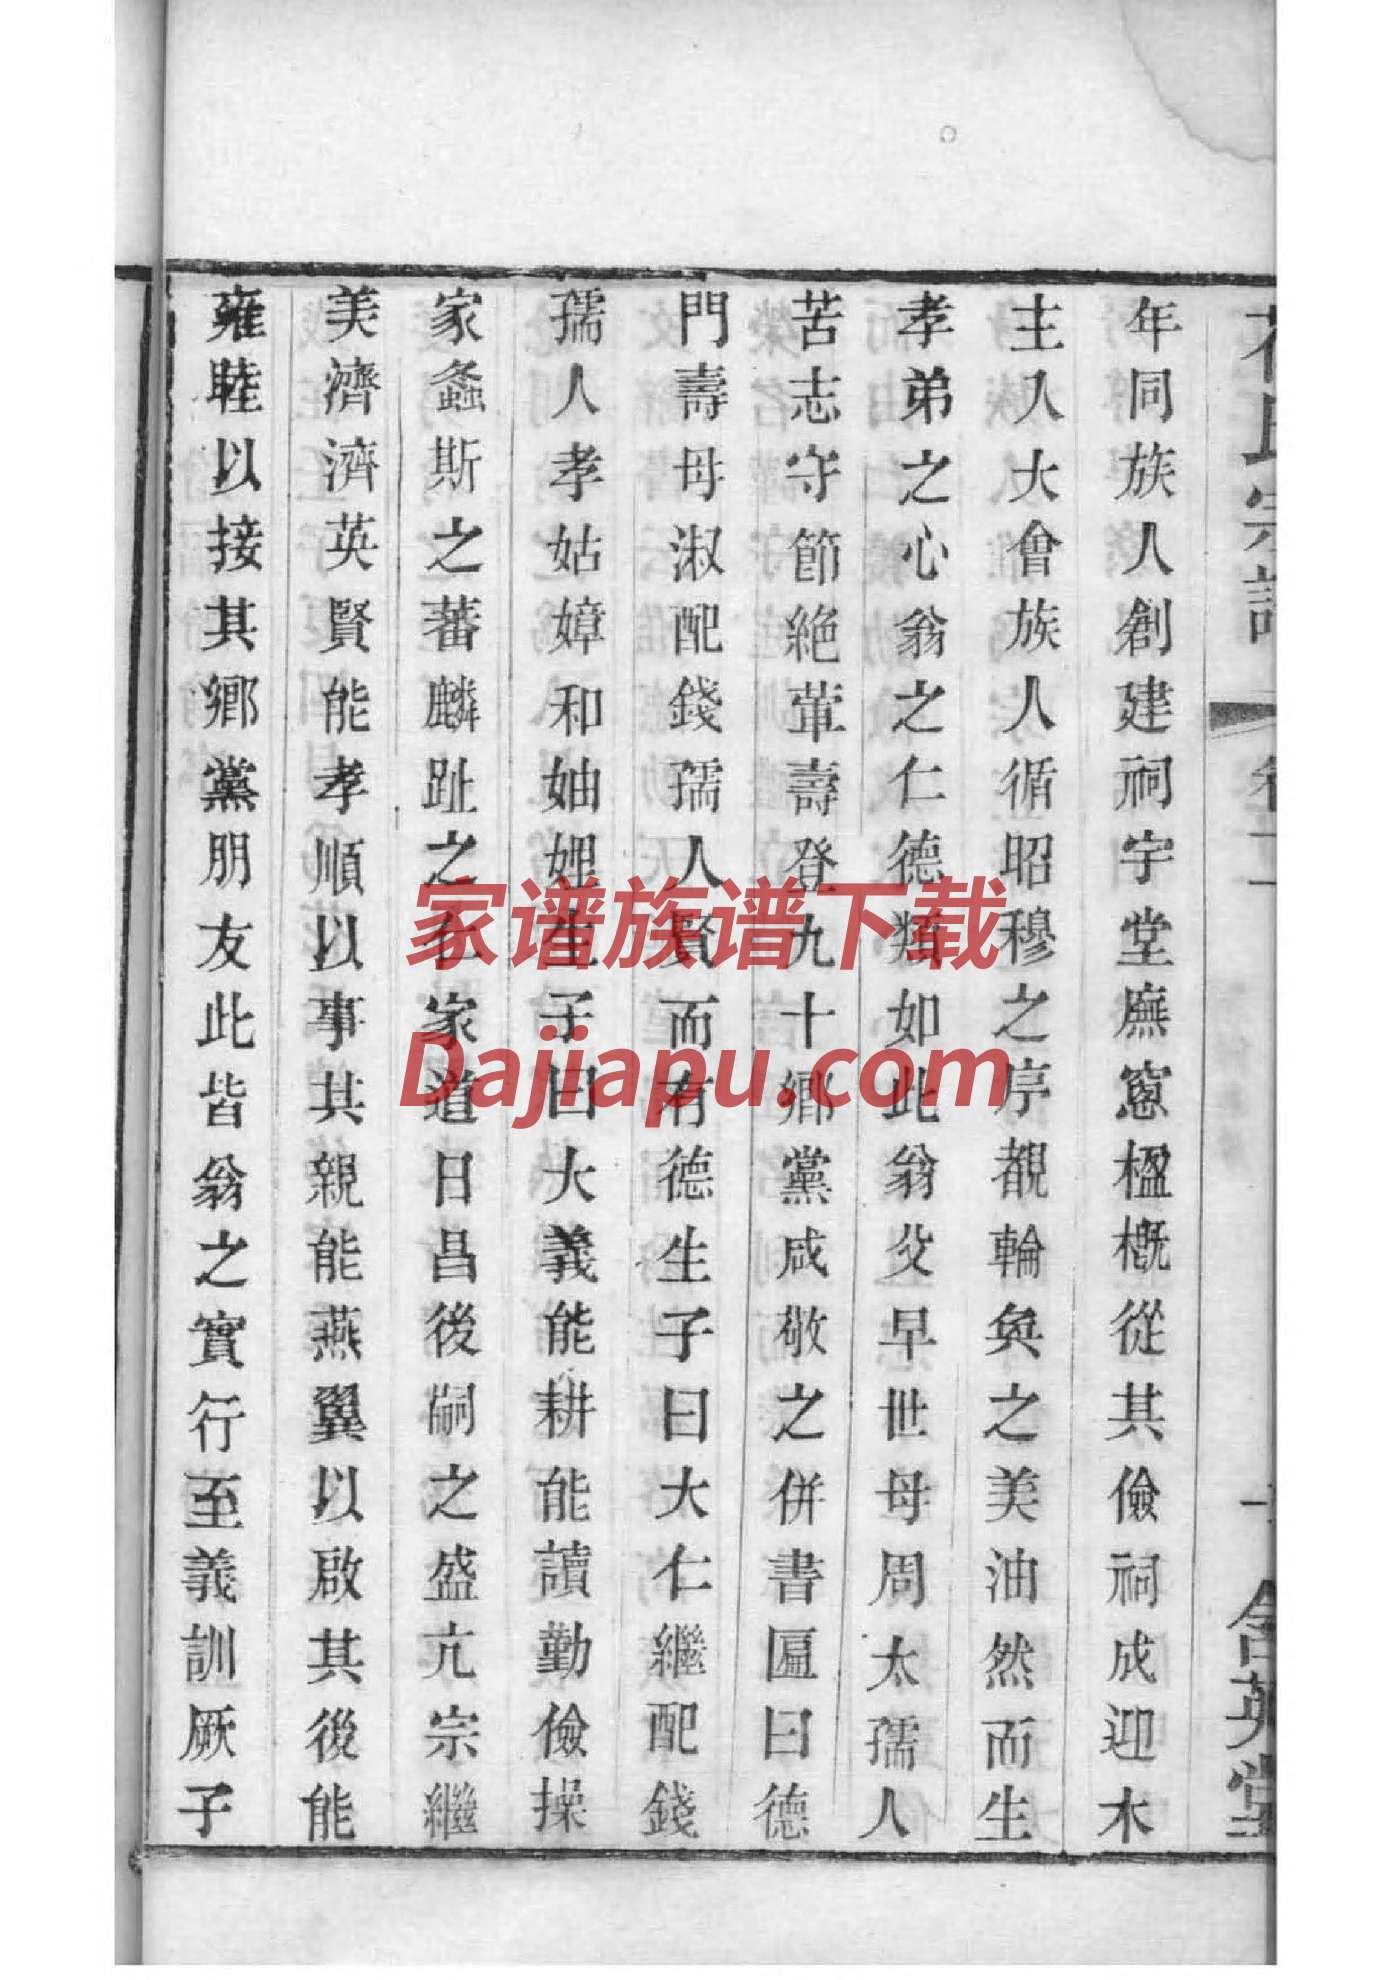 氏宗譜
含英堂
年同族人創建祠宇堂廡窓楹槪從其儉祠成迎木
主入大會族人循昭穆之序覩輪奐之美油然而生
孝弟之心翁之仁德類如此翁父早世母周太孺人
苦志守節絶葷壽登九十鄉黨咸敬之併書匾曰德
門壽母淑配錢孺人賢而有德生子曰大仁繼配錢
孺人孝姑嫜和妯娌生子曰大義能耕能讀勤儉操
家螽斯之蕃麟趾之仁家道日昌後嗣之盛亢宗繼
美濟濟英賢能孝順以事其親能燕翼以啟其後能
雍睦以接其鄉黨朋友此皆翁之實行至義訓厥子
家谱族谱下载
Dajiapu.com